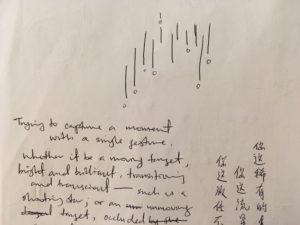 Trying to capture a moment
with a single gesture.
Whether it be a moving target,
bright and brilliant, transitioning
and transcient — such as a
shooting star; or an unmoving
target, occluded by the
你这稀有的
你这流
你这放任不